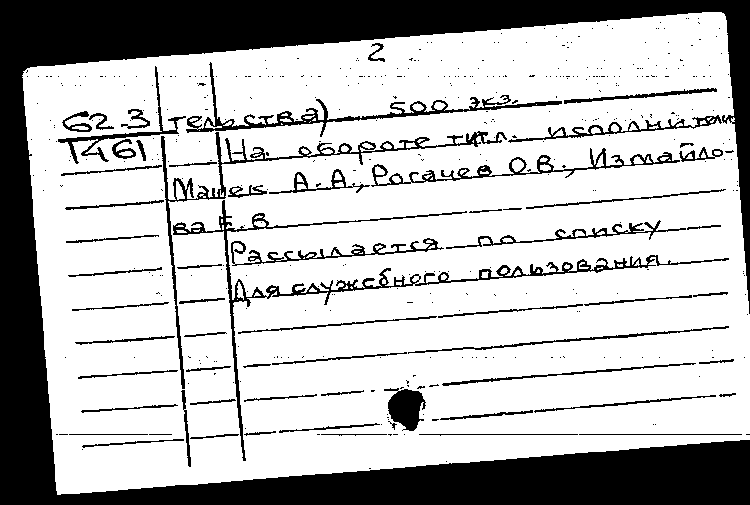 2
62-3 тельства) 500 экз.
1461 На обороте титл. исполнители
А.А., Рогачев О.В., Измайло-
ва Е.В
Рассылается по списку
Для служебного пользования.